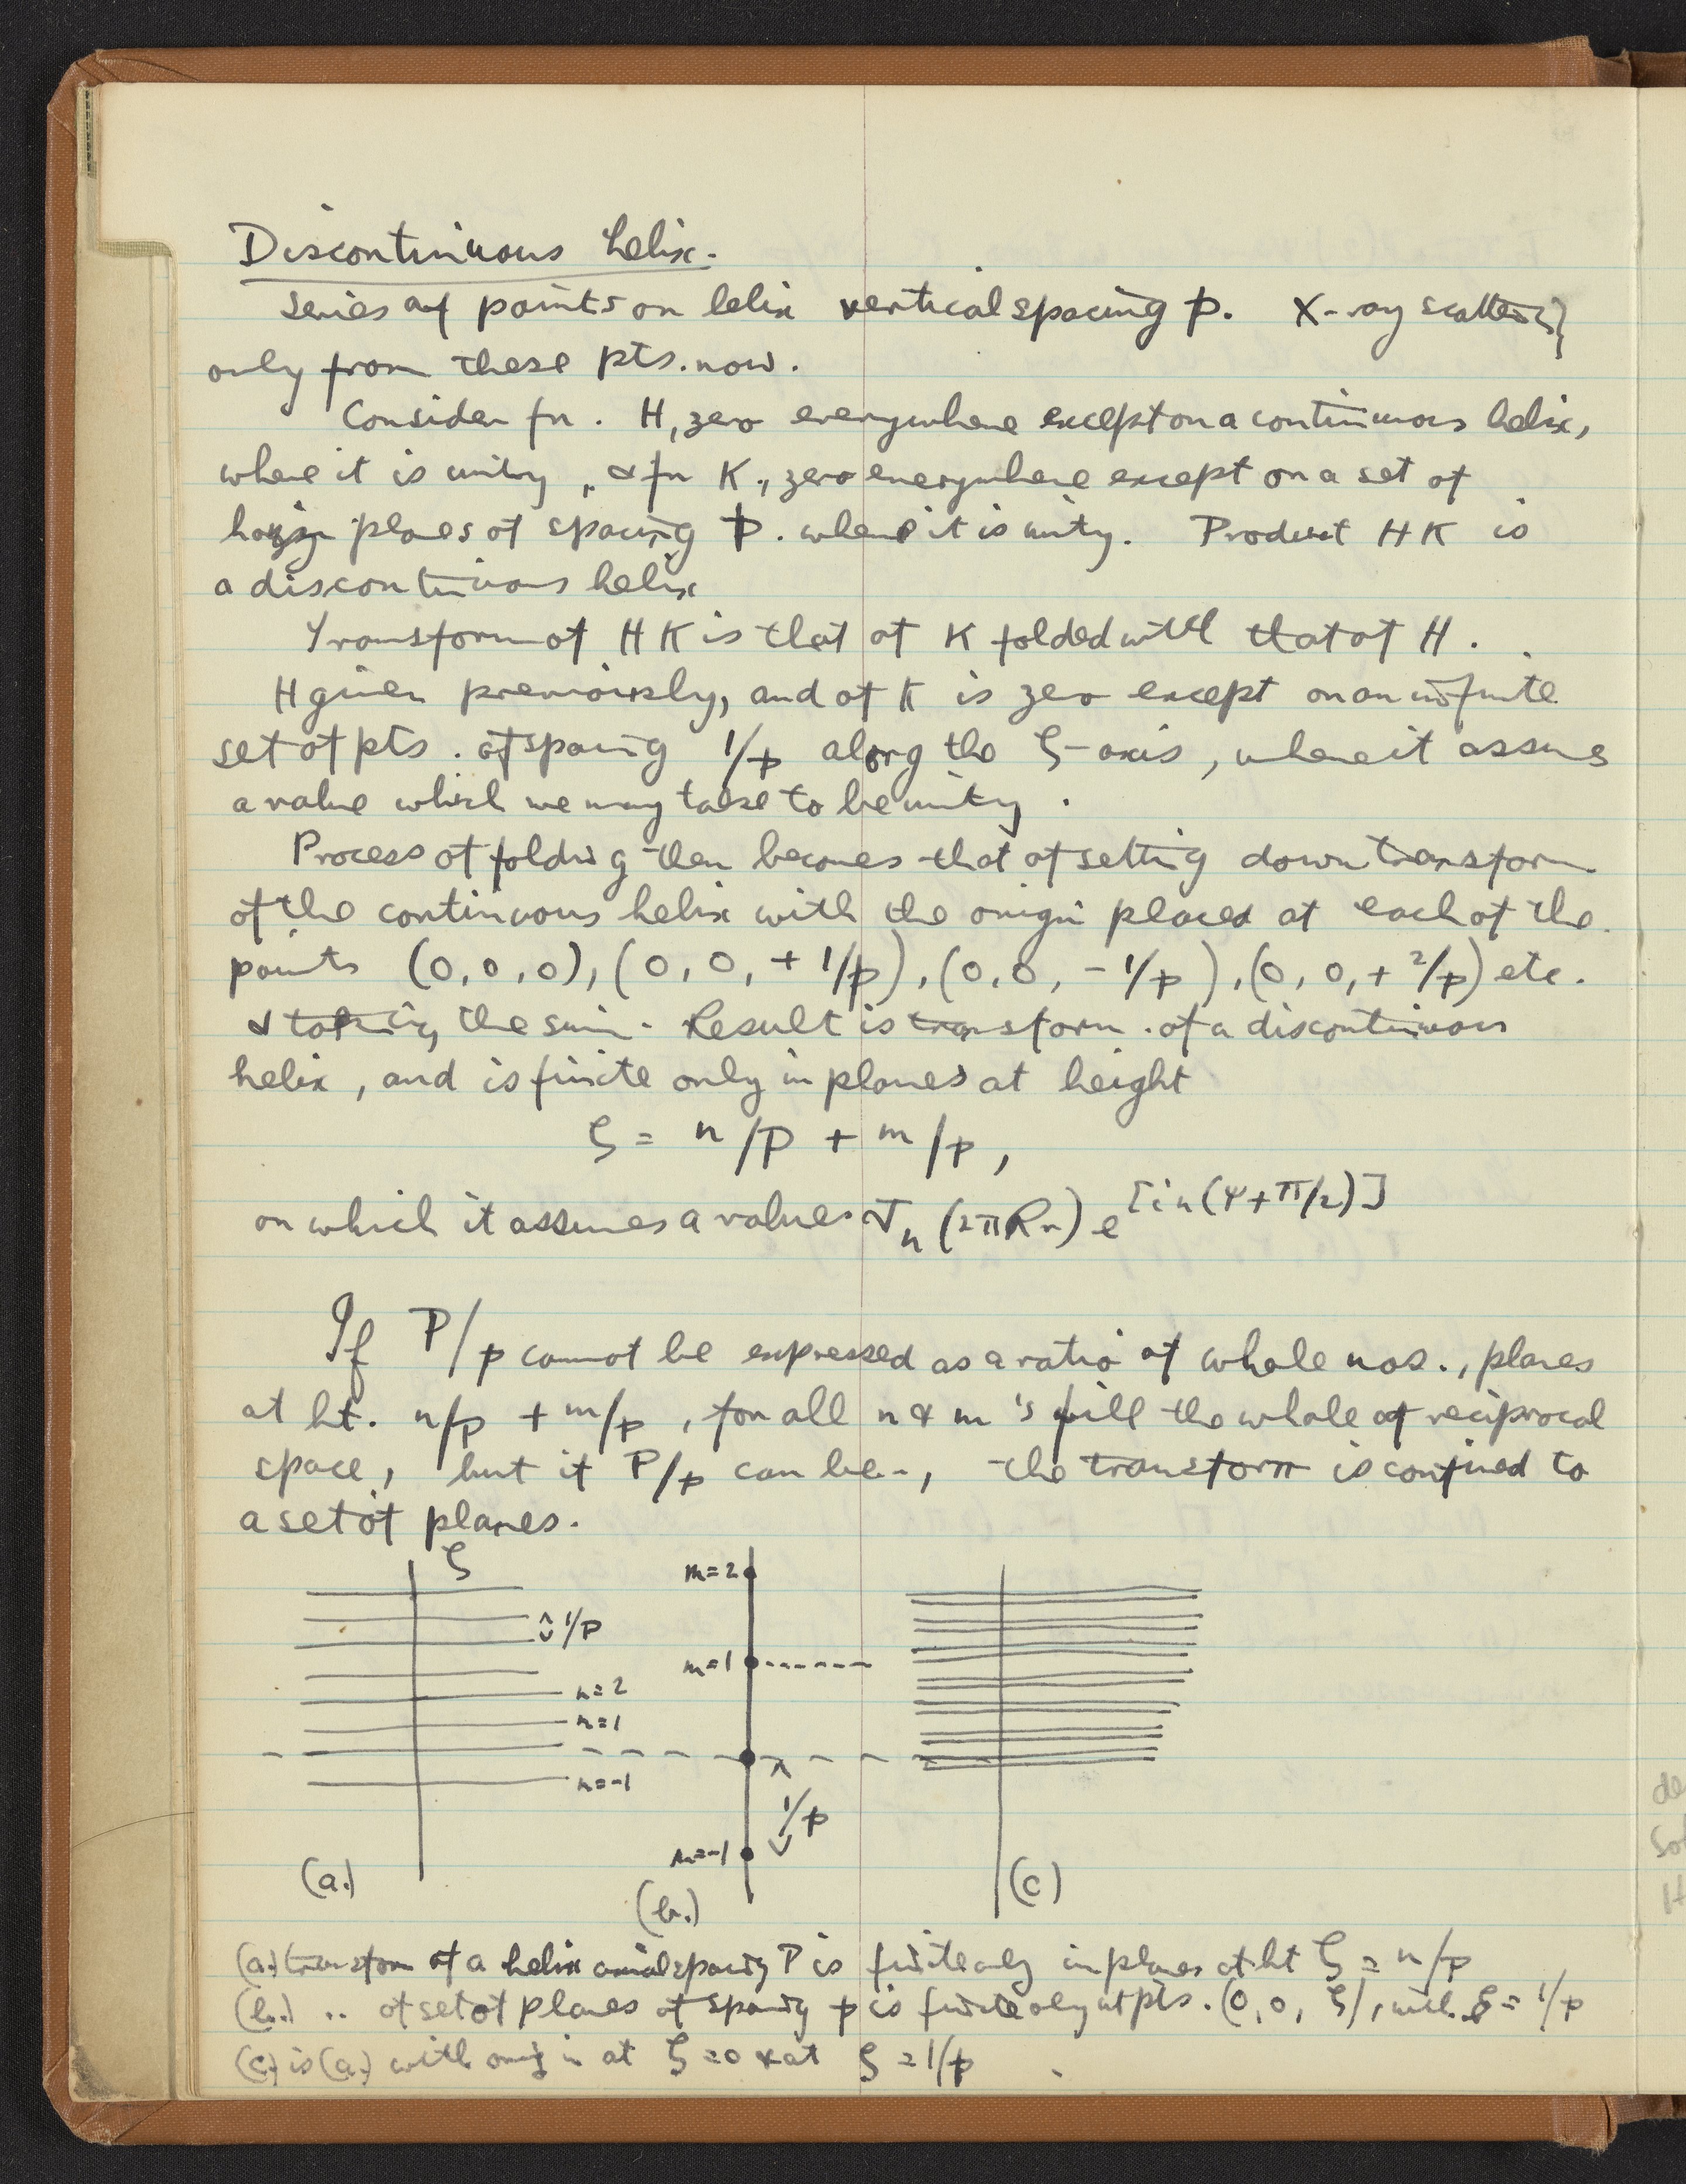 Discontinuous helix.
Series of points on helix vertical spacing p. X-ray scattering
only from these pts. now.
Consider fn. H, zero everywhere except on a continuous helix,
where it is unity, & fn K, zero everywhere except on a set of
planes of spacing p. where it is unity. Product HK is
a discontinuous helix
Transform of HK is that of K folded with that of H.
H given previously, and of K is zero except on an infinite
set of pts. of spacing 1/p along the ζ-axis, where it assumes
a value which we may take to be unity.
Process of folding then becomes that of setting down transform
of the continuous helix with the origin placed at each of the
points (0, 0, 0), (0, 0, + 1/p), (0, 0, - 1/p), (0, 0, + 2/p) etc.
& taking the sum. Result is transform. of a discontinuous
helix, and is finite only in planes at height
ζ = n/P + m/p,
on which it assumes a values Jn (2πRr) e [in(Ψ+π/2)]
If P/p cannot be expressed as a ratio of whole nos., planes
at ht. n/p + m/p, for all n & m 's fill the whole of reciprocal
space, but if P/p can be-, the transform is confined to
a set of planes.
ζ
1/P
n=2
n=1
n=-1
(a.)
m=2
m=1
1/p
m=-1
(b.)
(c)
(a.) transform of a helix axial spacing P is finite only in planes at ht ζ = n/p
(b.) .. of set of planes of spacing p is finite only at pts. (0, 0, ζ), with ζ = 1/p
(c.) is (a.) with origin at ζ = 0 & at ζ = 1/p